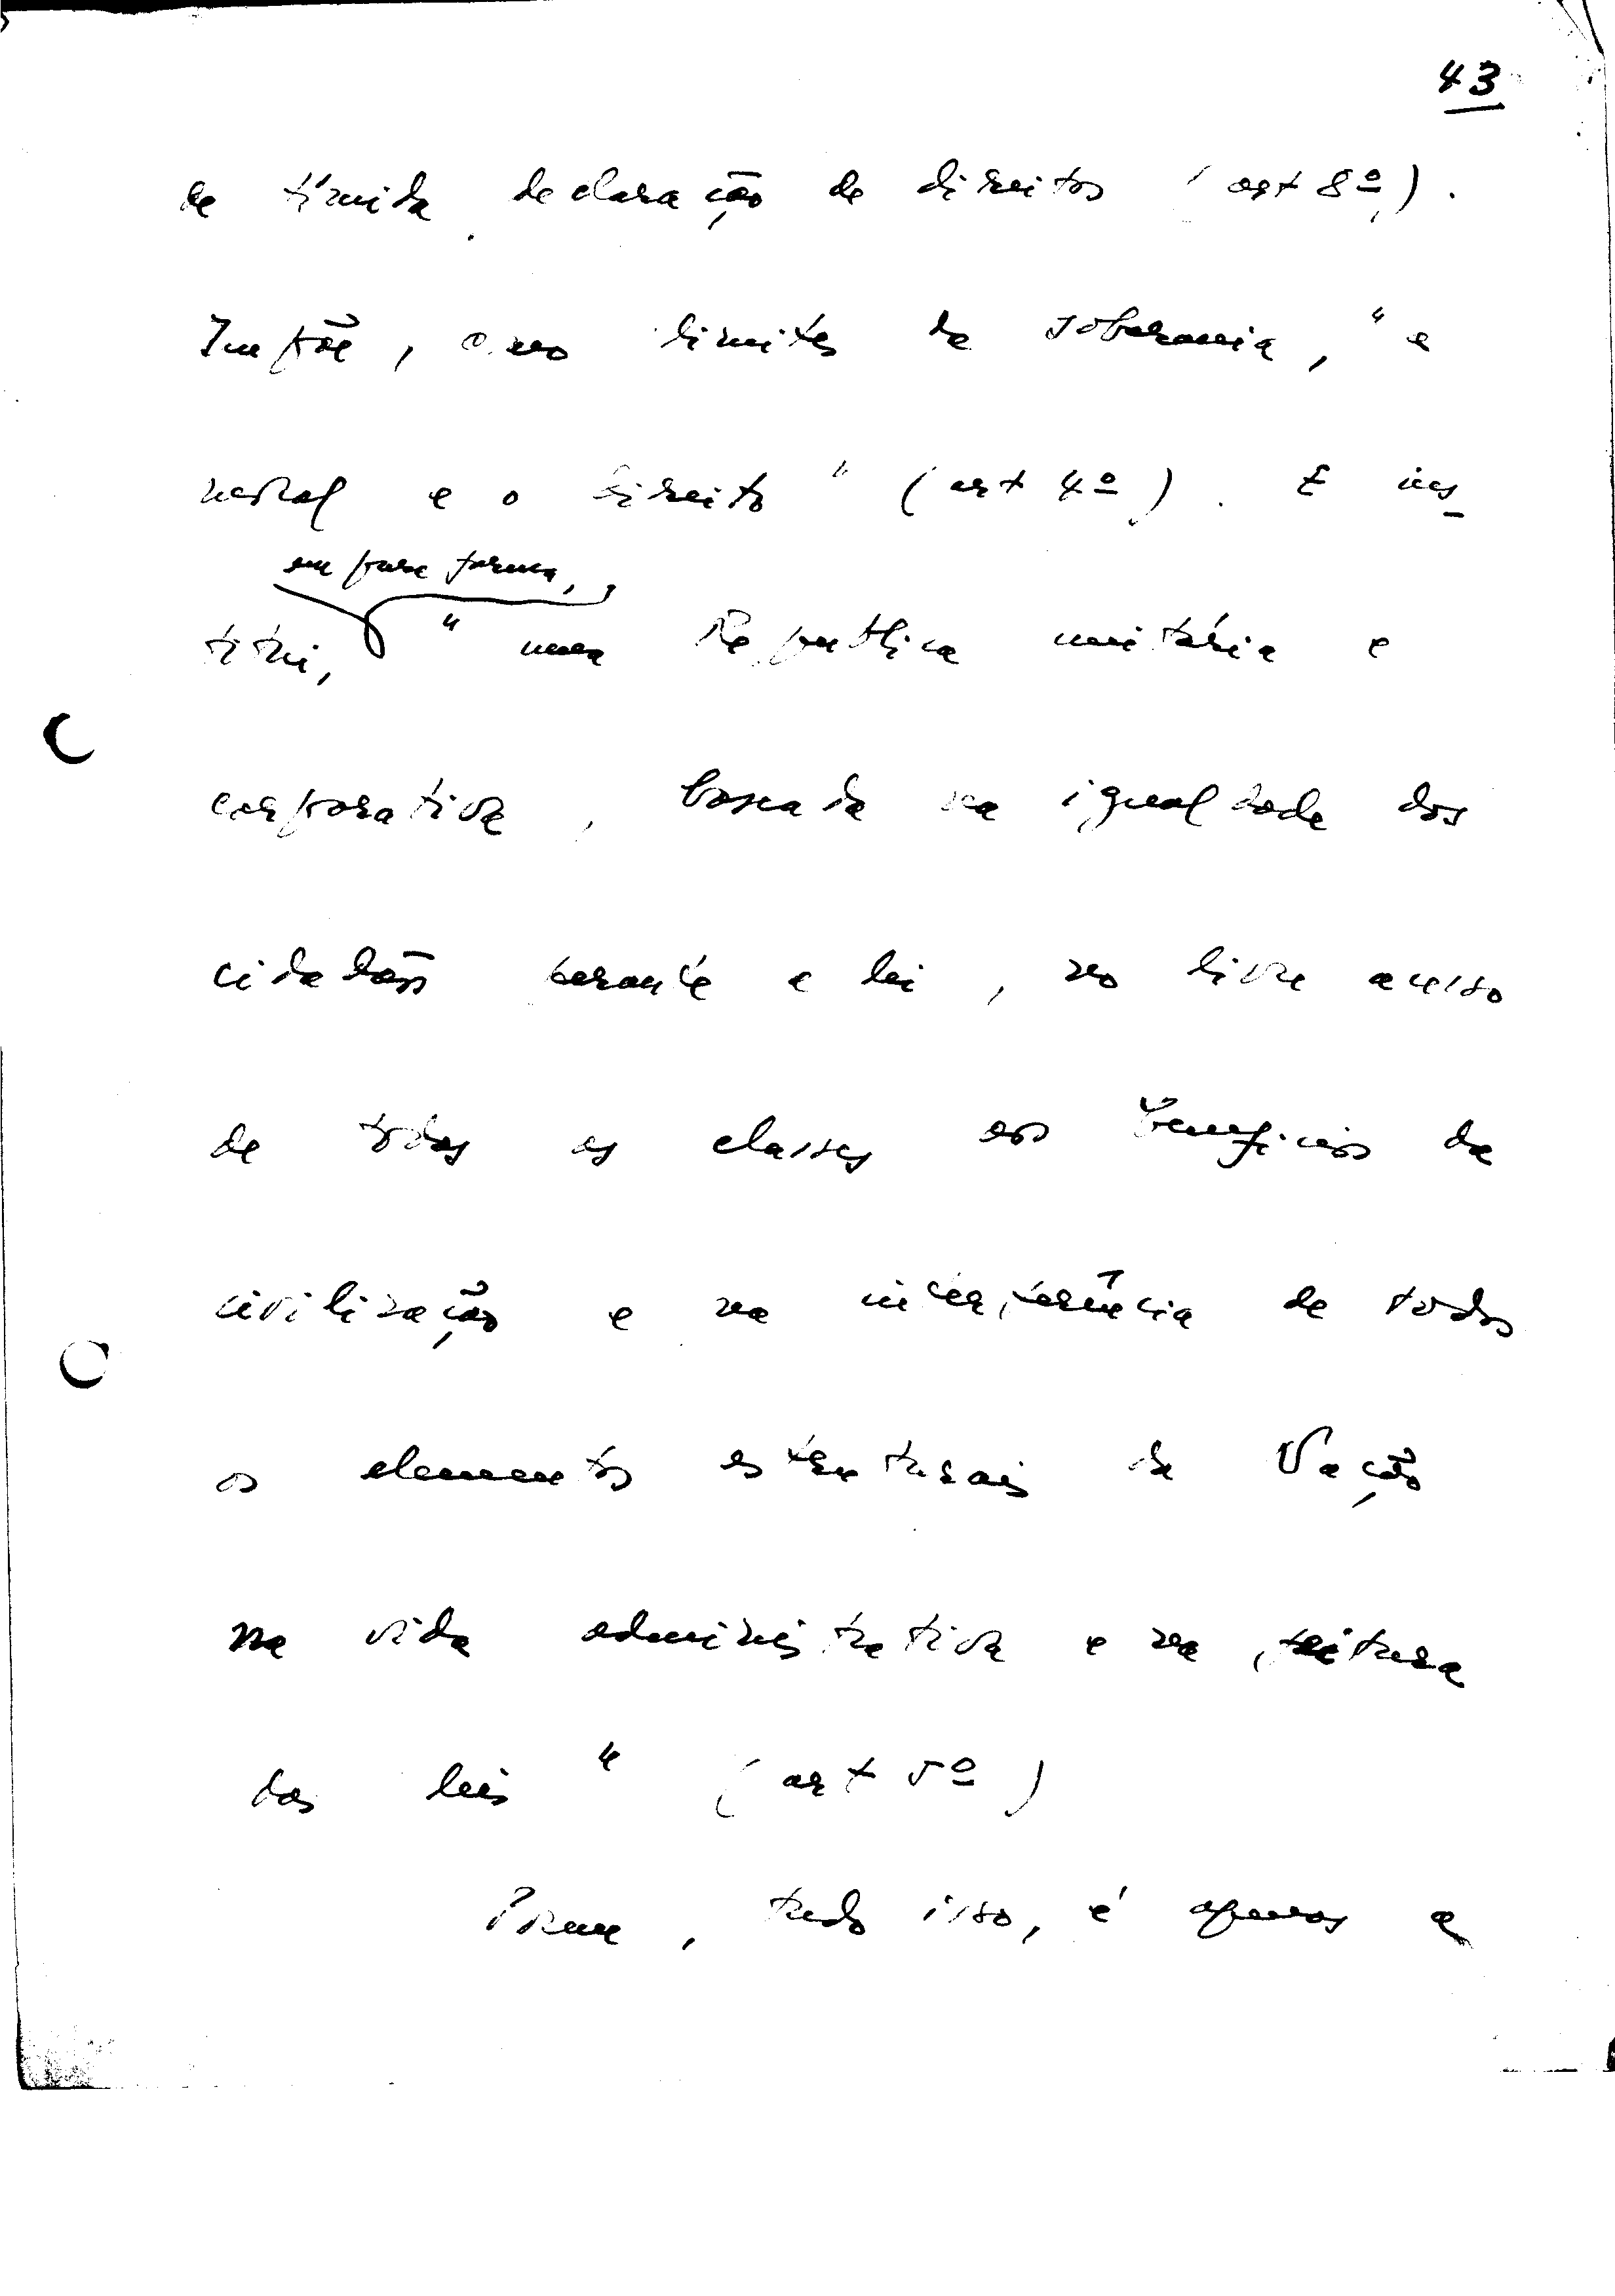 43
de tímida declaração de direitos (art 8º).
Impõe, como limites da soberania, "a
moral e o direito" (art 4º). E ins-
em pura forma,
titui, "uma República unitária e
corporativa, baseada na igualdade dos
cidadãos perante a lei, no livre acesso
de todas as classes aos benefícios da
civilização e na interferência de todos
os elementos estruturais da Nação
na vida administrativa e na feitura
das leis" (art 5º)
Porem, tudo isso, é apenas a